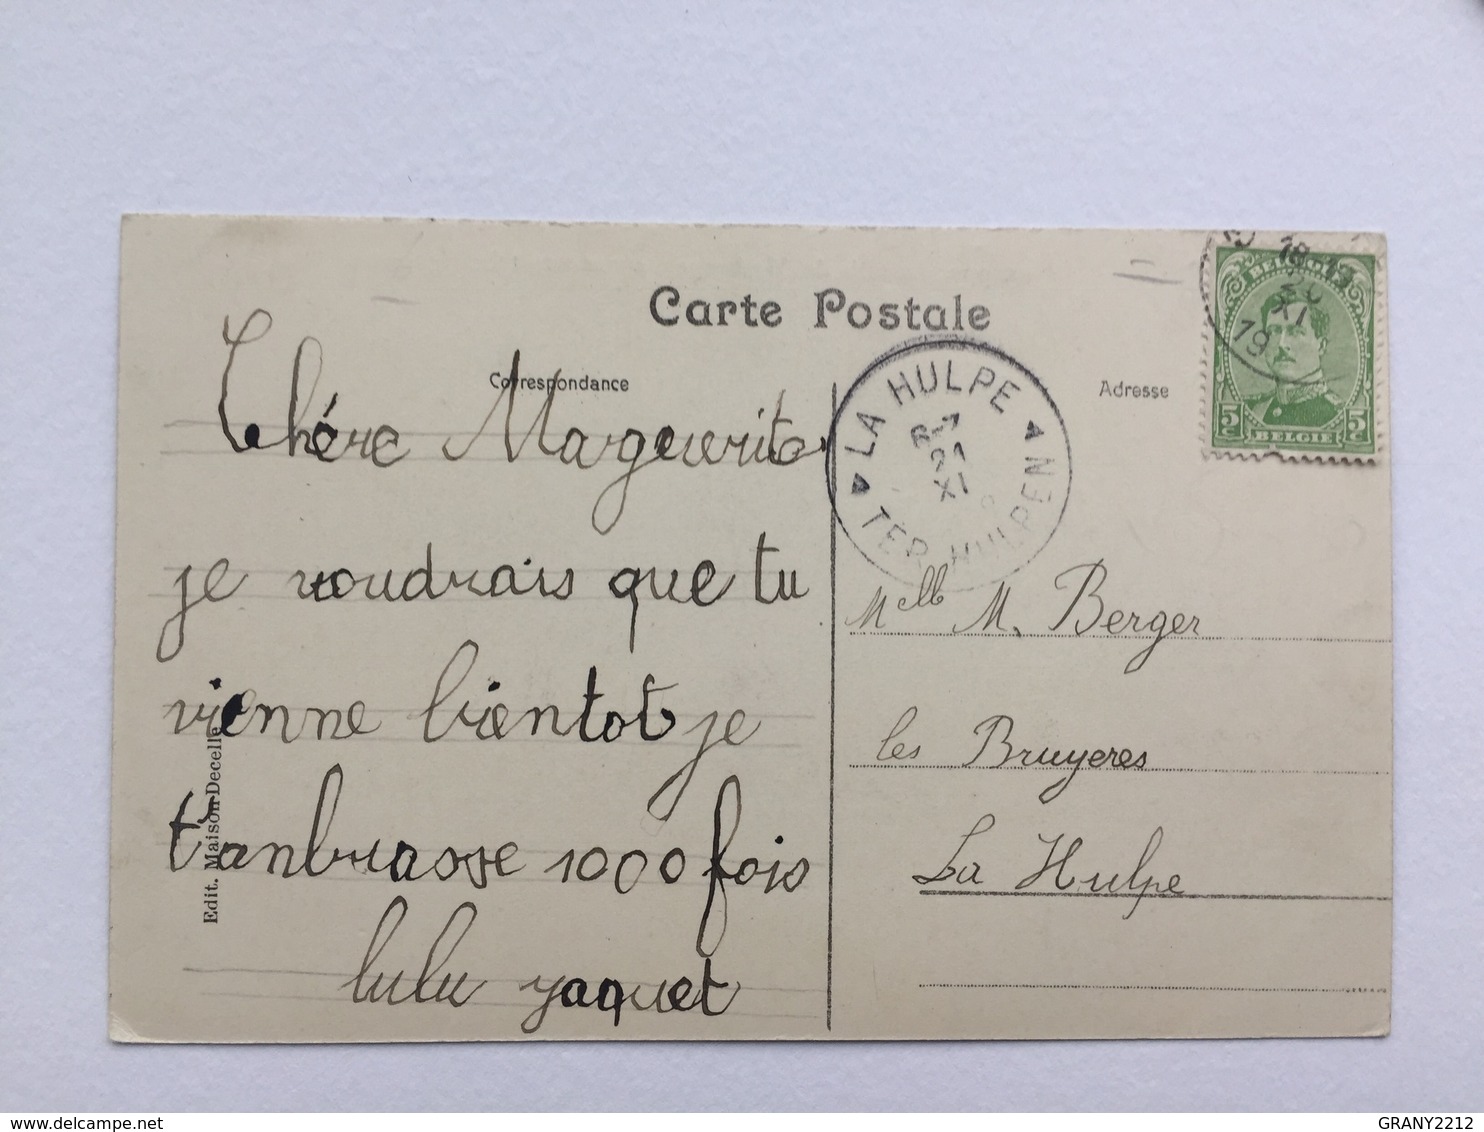 Carte Postale
Correspondance
Adresse
Chére Marguerite
je voudrais que tu
vienne bientot je
t'anbrasse 1000 fois
lulu yaquet
Edit. Maison Decelle
LA HULPE
8-7
21
XI
TER HULPEN
18-19
20
XI
19
BELGIQUE
5 5
BELGIE
Melle M. Berger
les Bruyeres
La Hulpe
delcampe.net
GRANY2212